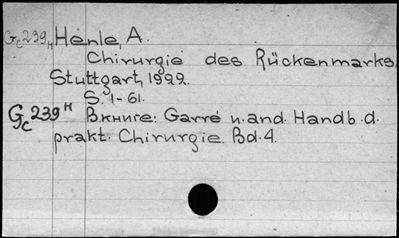 Gc239н Henle, A.
Chirurgie des Rückenmarks,
Stuttgart, 1922.
S. 1-61.
Gc239н Вкниге: Garré u. and. Handb. d.
prakt. Chirurgie. Bd. 4.